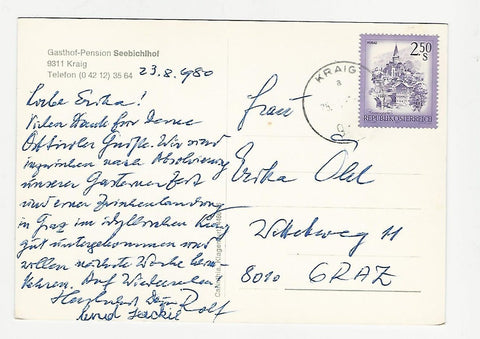 Gasthof-Pension Seebichlhof
9311 Kraig
Telefon (0 42 12) 35 64
23.8.1980
Liebe Erika!
Vielen Dank für Deine
Osttiroler Grüße. Wir sind
inzwischen nach Absolvierung
unserer Gasteiner Zeit
und einer Zwischenlandung
in Graz im idyllischen Kraig
gut untergekommen und
wollen nächste Woche heim-
kehren. Auf Wiedersehen
Herzlichst Dein Rolf
und
KRAIG
2.50
S
REPUBLIK ÖSTERREICH
Frau
Erika
11
8010 GRAZ